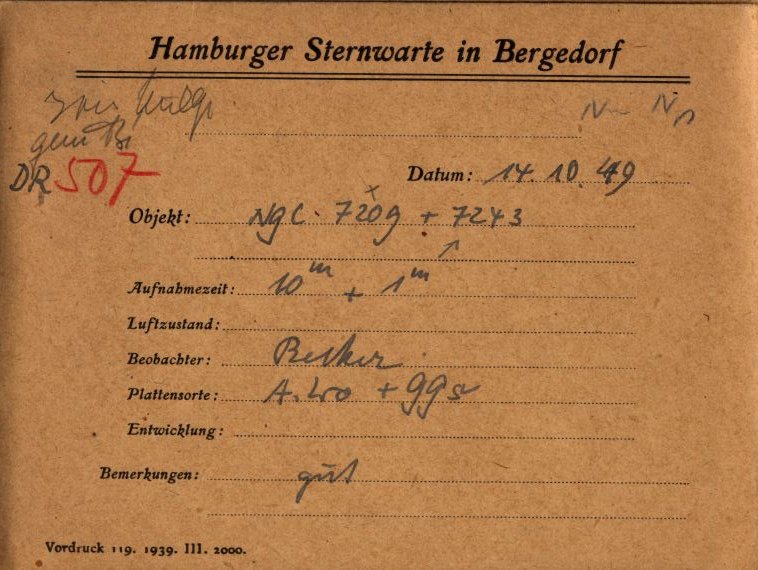 Hamburger Sternwarte in Bergedorf
DR 507
Datum: 14. 10. 49
Objekt: NGC. 7209 + 7243
Aufnahmezeit: 10 m + 1 m
Luftzustand:
Beobachter:
Plattensorte: + 99
Entwicklung:
Bemerkungen: gut
Vordruck 119. 1939. III. 2000.